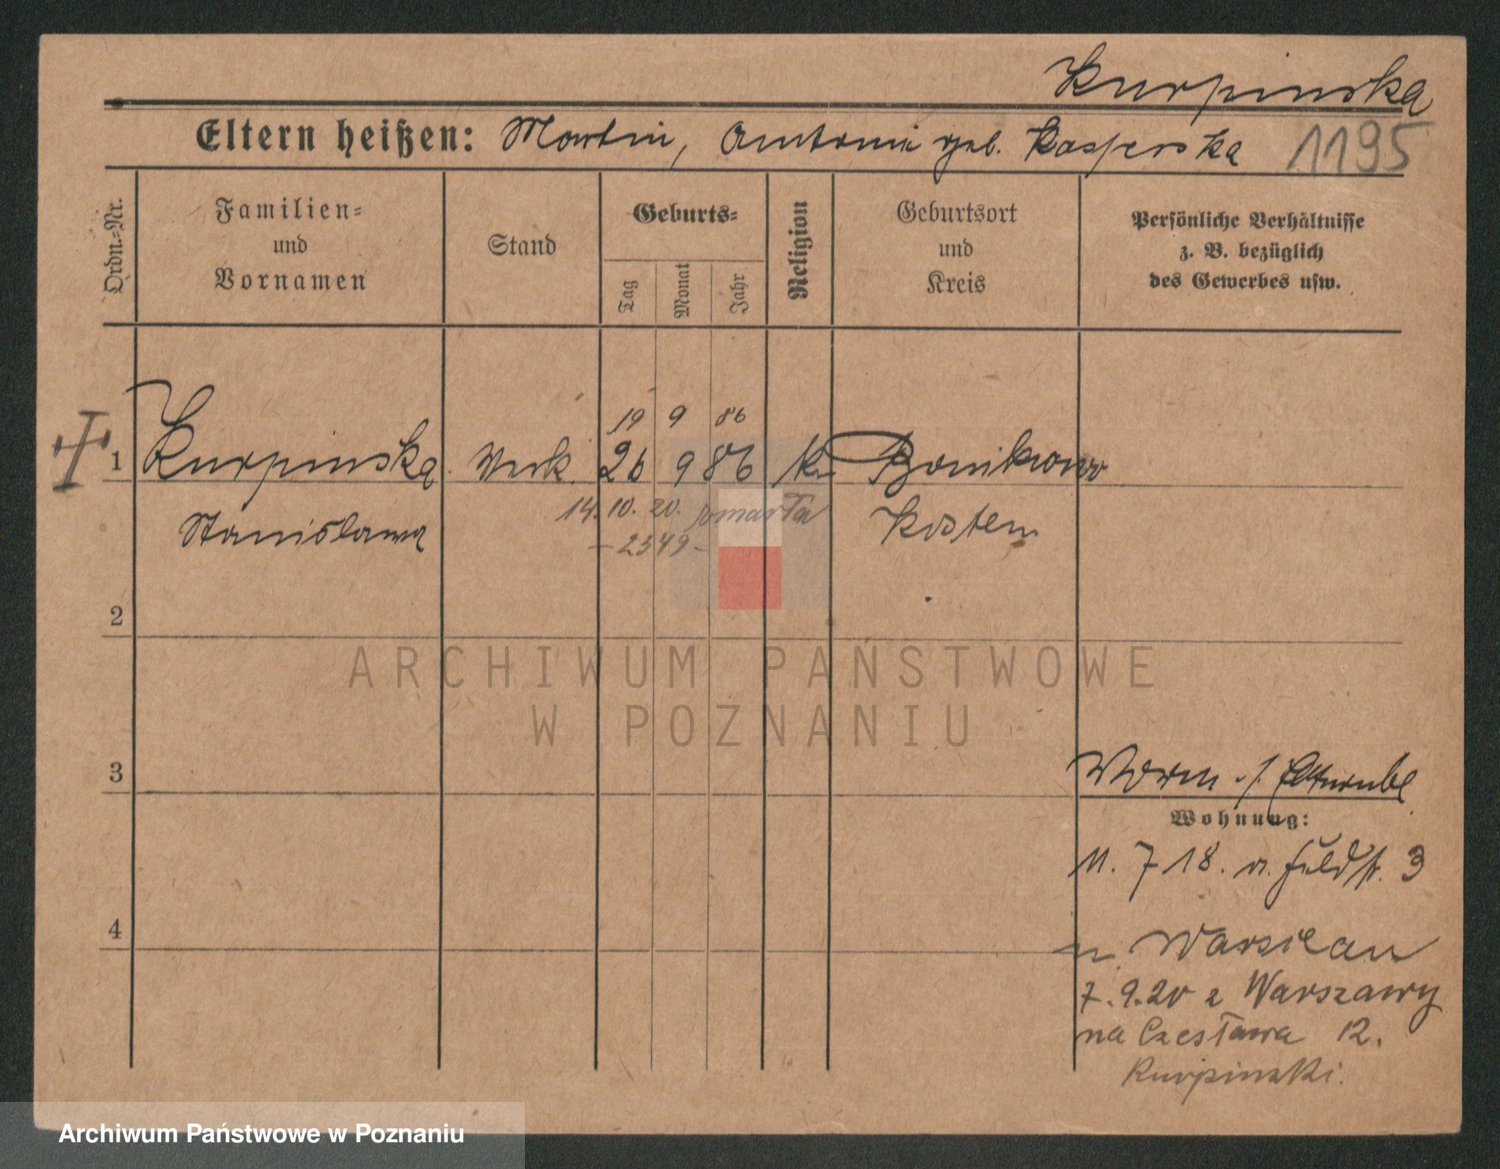 Kurpinska
Eltern heißen: Martin, Antonie geb. Kasperska 1195
Ordn.-Nr.
Familien-
und
Vornamen
Stand
Geburts-
Tag
Monat
Jahr
Religion
Geburtsort
und
Kreis
Persönliche Verhältnisse
z. B. bezüglich
des Gewerbes usw.
19 9 86
1 Kurpinska Verk. 26 9 86 k. Bonikowo
14. 10. 20. zmarła
Stanisława Kosten
- 2349 -
2
ARCHIWUM PAŃSTWOWE
W POZNANIU
3
Wohnung:
11. 7 18. n. Feldstr. 3
4
n. Warschau
7. 9. 20 z Warszawy
na Czesława 12.
Kurpinski.
Archiwum Państwowe w Poznaniu